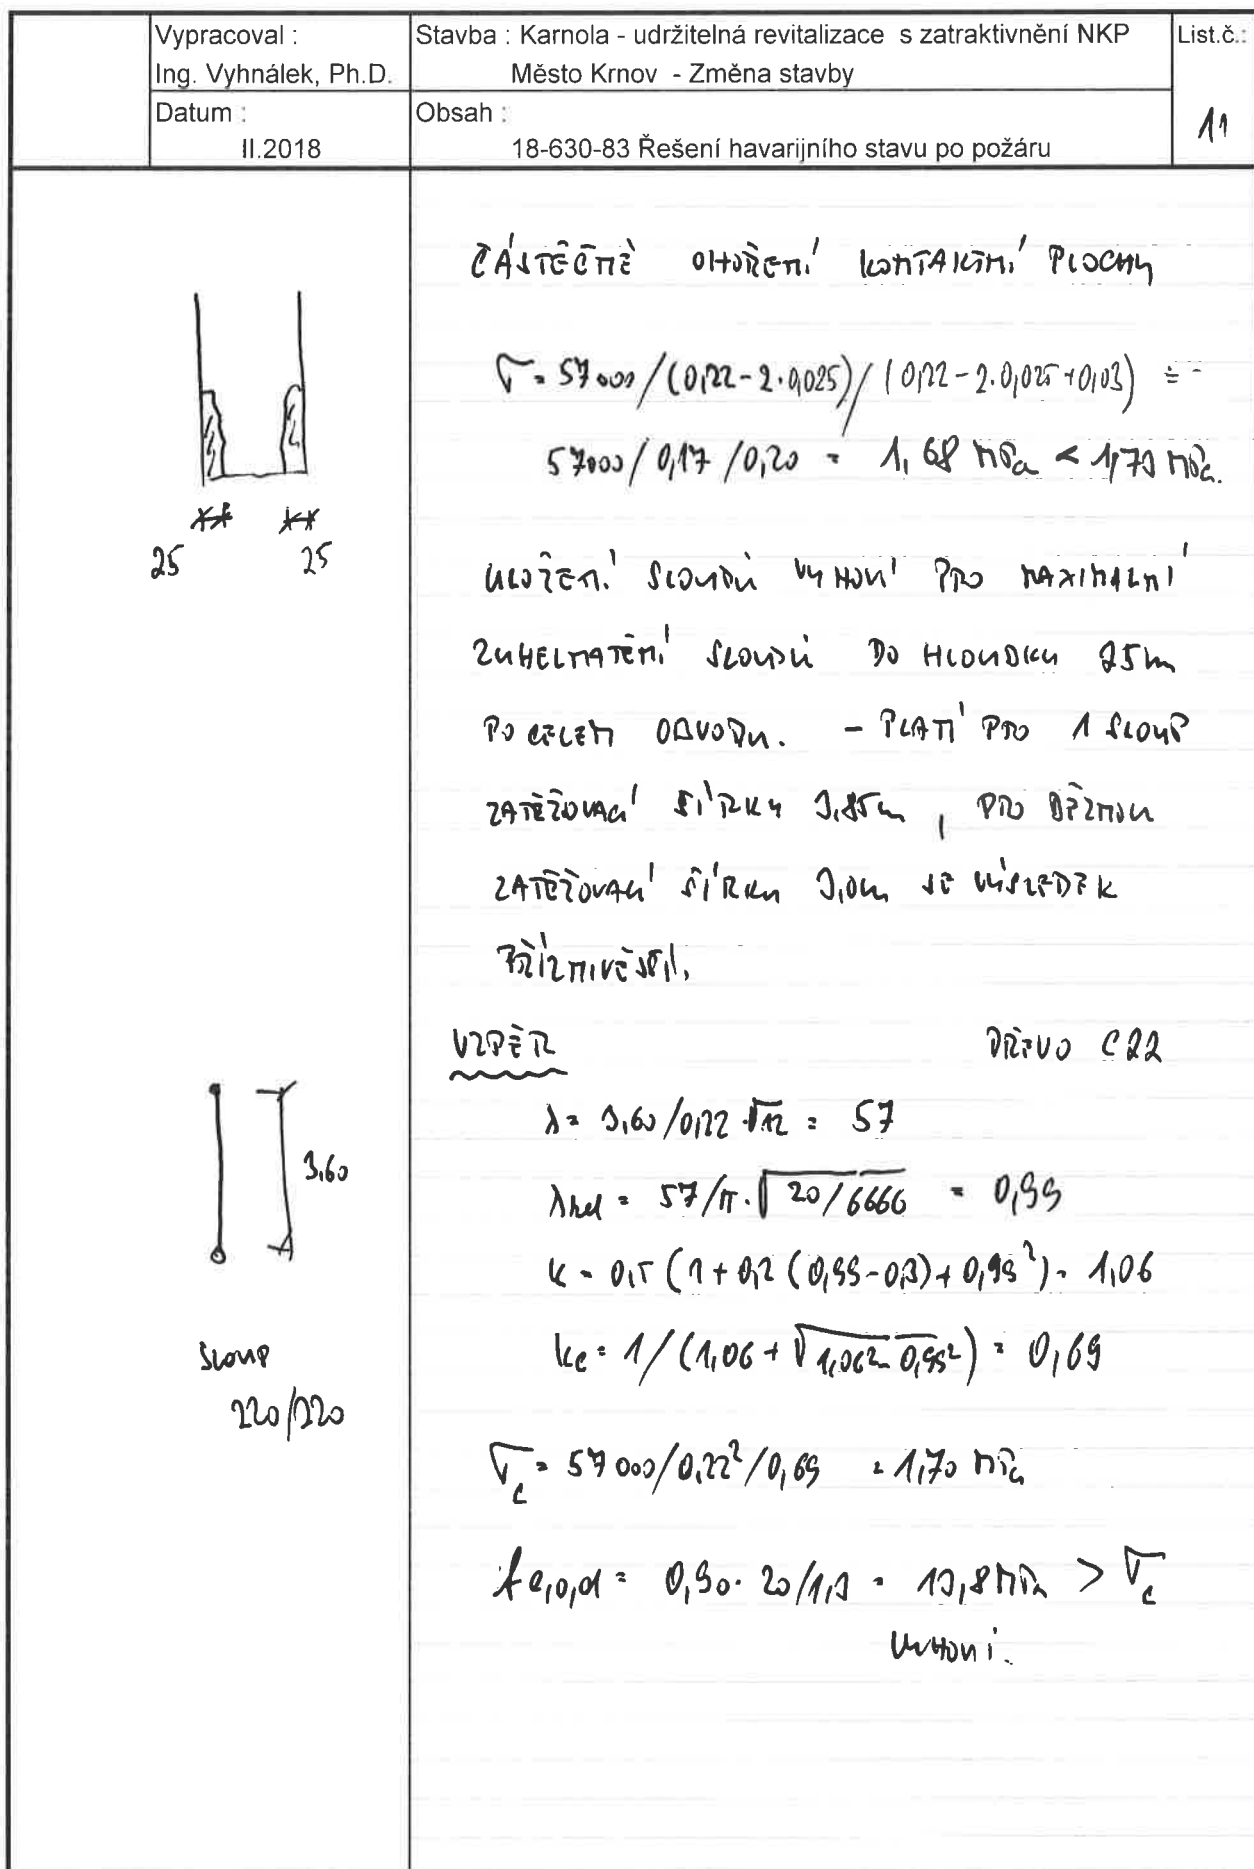 Vypracoval :
Ing. Vyhnálek, Ph.D.
Stavba : Karnola - udržitelná revitalizace s zatraktivnění NKP
Město Krnov - Změna stavby
List.č.:
11
Datum :
II.2018
Obsah :
18-630-83 Řešení havarijního stavu po požáru
ČÁSTEČNÉ OHOŘENÍ KONTAKTNÍ PLOCHY
σ = 57000/(0,22-2·0,025)/(0,22-2·0,025+0,03) =
57000/0,17/0,20 = 1,68 MPa < 1,73 MPa.
25 25
ULOŽENÍ SLOUPŮ VYHOVÍ PRO MAXIMÁLNÍ
ZUHELNATĚNÍ SLOUPŮ DO HLOUBKY 25m
PO CELÉM OBVODU. - PLATÍ PRO 1 SLOUP
ZATĚŽOVACÍ ŠÍŘKY 3,85m, PRO BĚŽNOU
ZATĚŽOVACÍ ŠÍŘKU 3,0m JE VÝSLEDEK
PŘÍZNIVĚJŠÍ.
VZPĚR DŘEVO C22
λ = 3,60/0,22·√12 = 57
3,60
λrel = 57/π·√20/6666 = 0,99
k = 0,5 (1+0,2 (0,99-0,3)+0,99²) = 1,06
kc = 1/(1,06+√1,06²-0,99²) = 0,69
SLOUP
220/220
σc = 57000/0,22²/0,69 = 1,70 MPa
fc,0,d = 0,90·20/1,3 = 13,8 MPa > σc
VYHOVÍ.